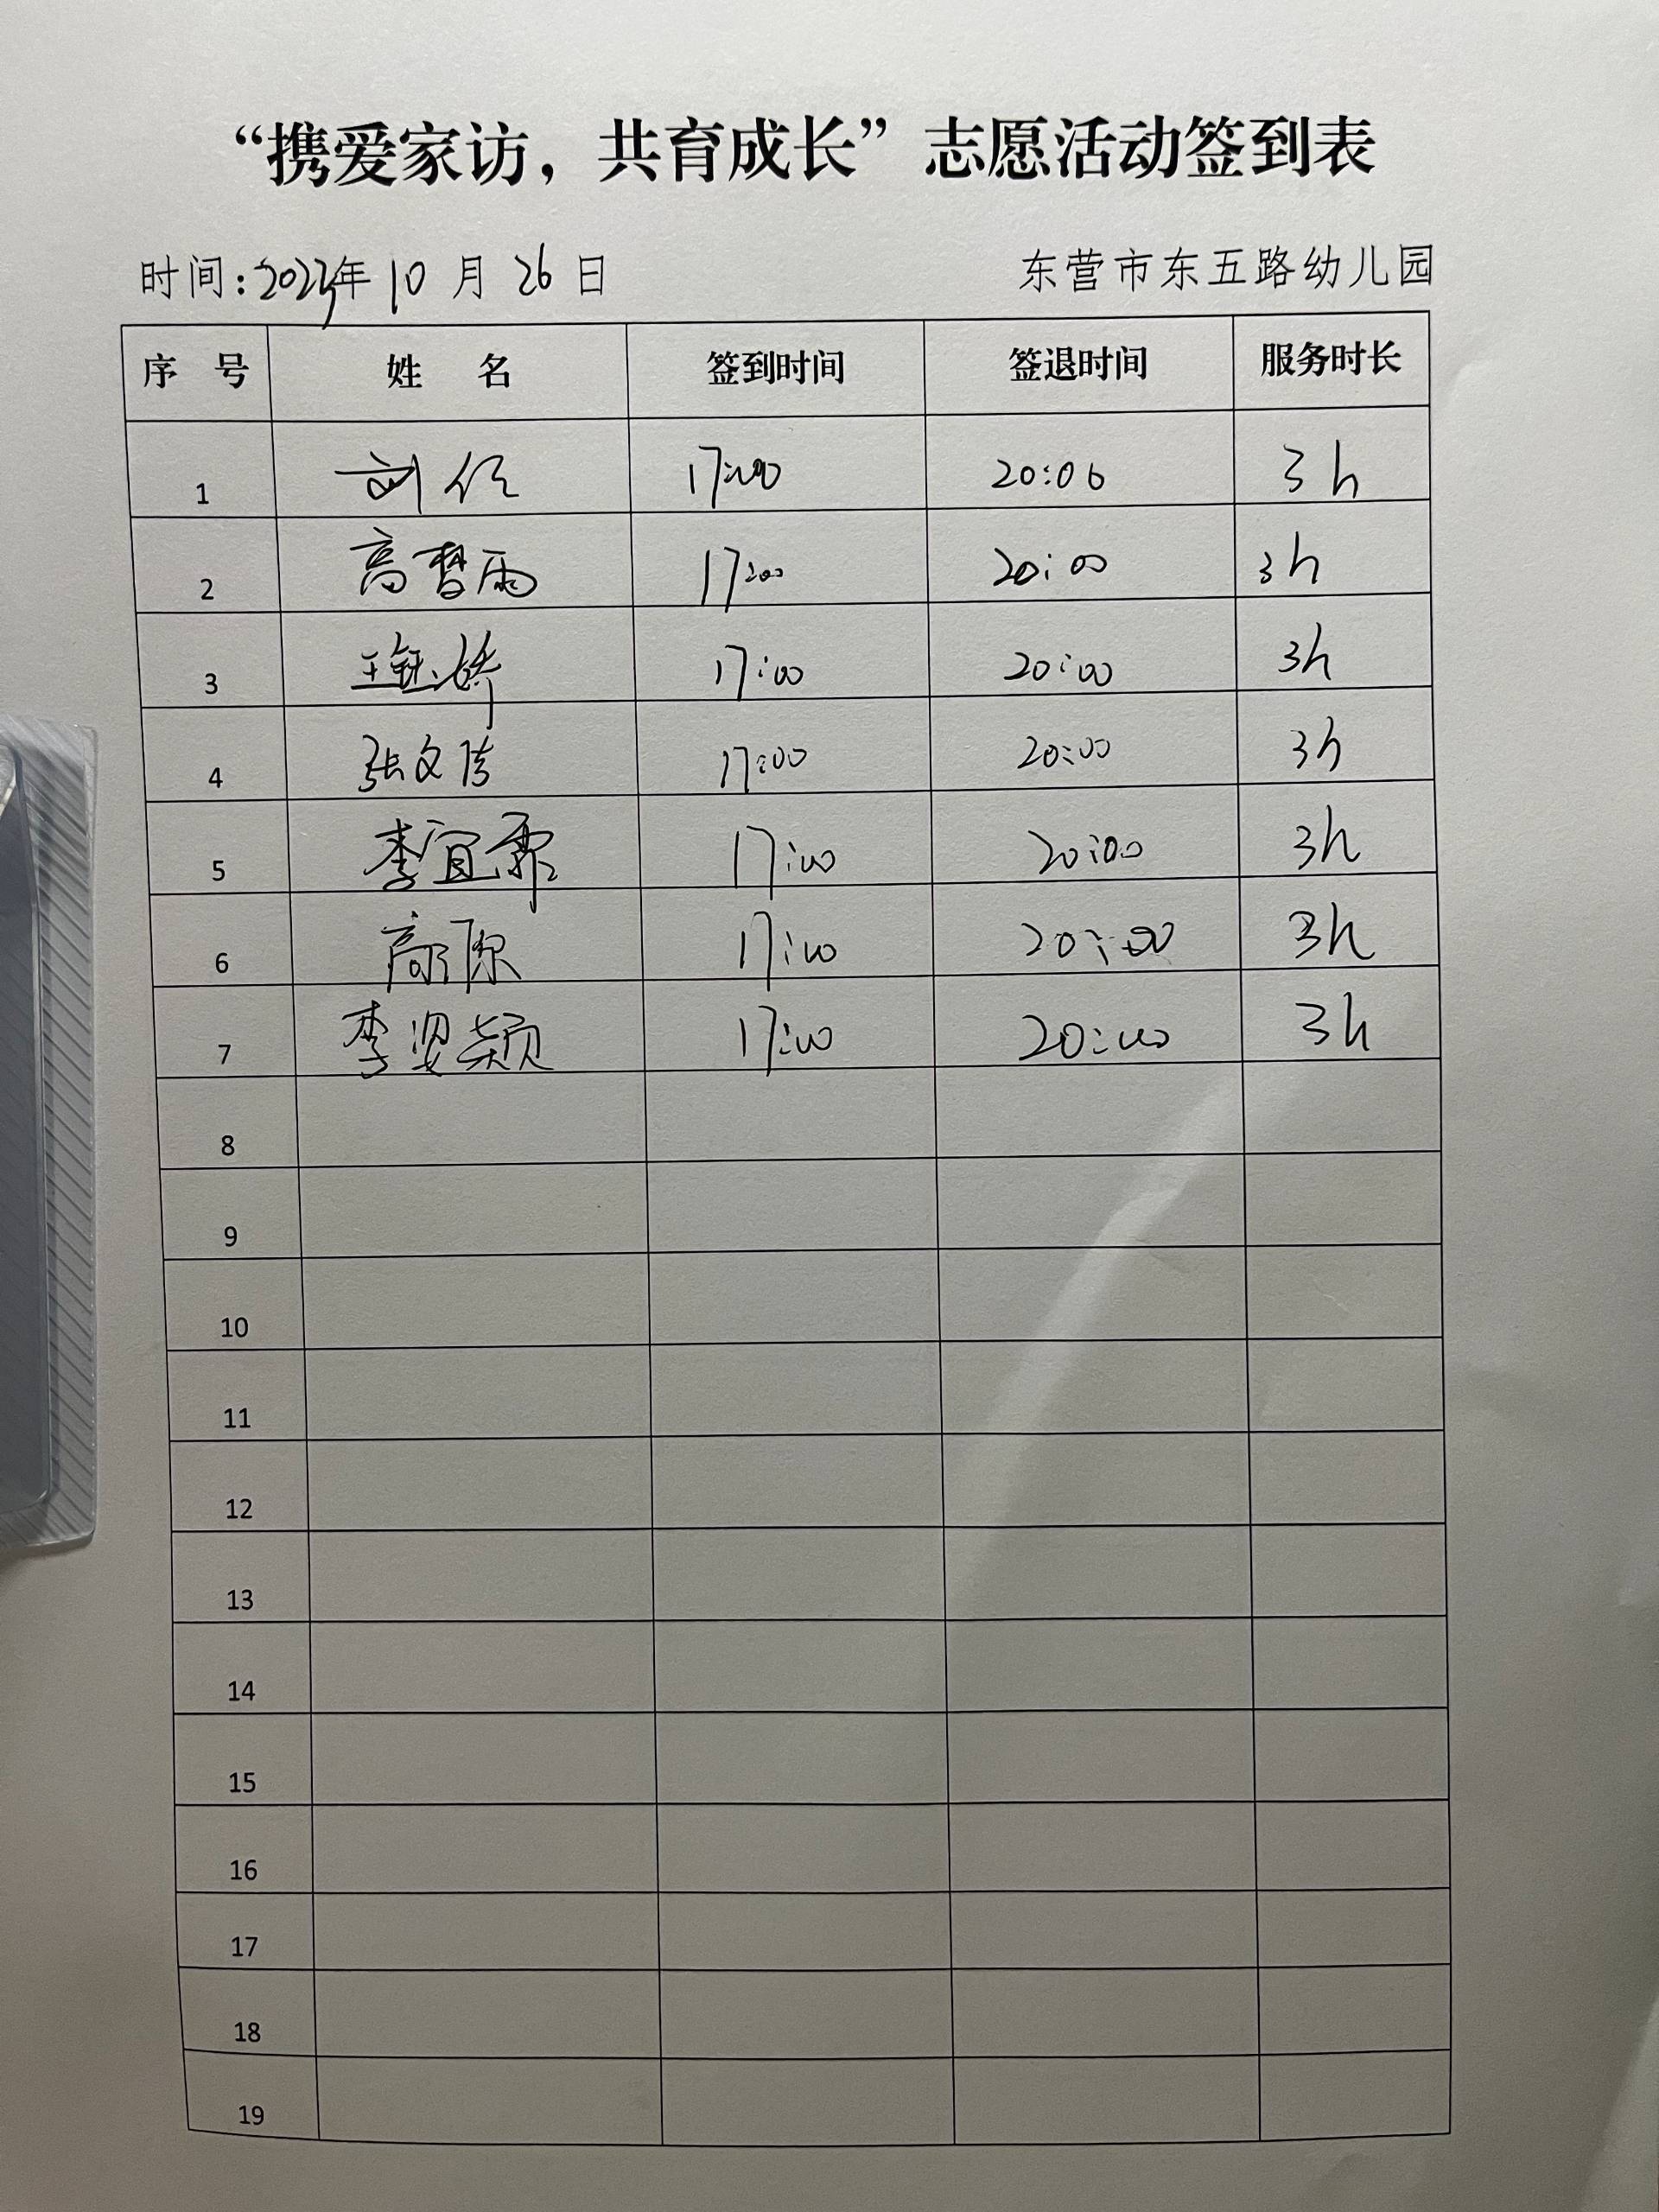 “携爱家访，共育成长”志愿活动签到表
时间：2023年 10 月 26 日 东营市东五路幼儿园
序 号 姓 名 签到时间 签退时间 服务时长
1 刘 17:00 20:00 3h
2 高梦雨 17:00 20:00 3h
3 王钰婷 17:00 20:00 3h
4 张文倩 17:00 20:00 3h
5 李宜霏 17:00 20:00 3h
6 高源 17:00 20:00 3h
7 李姿颖 17:00 20:00 3h
8
9
10
11
12
13
14
15
16
17
18
19